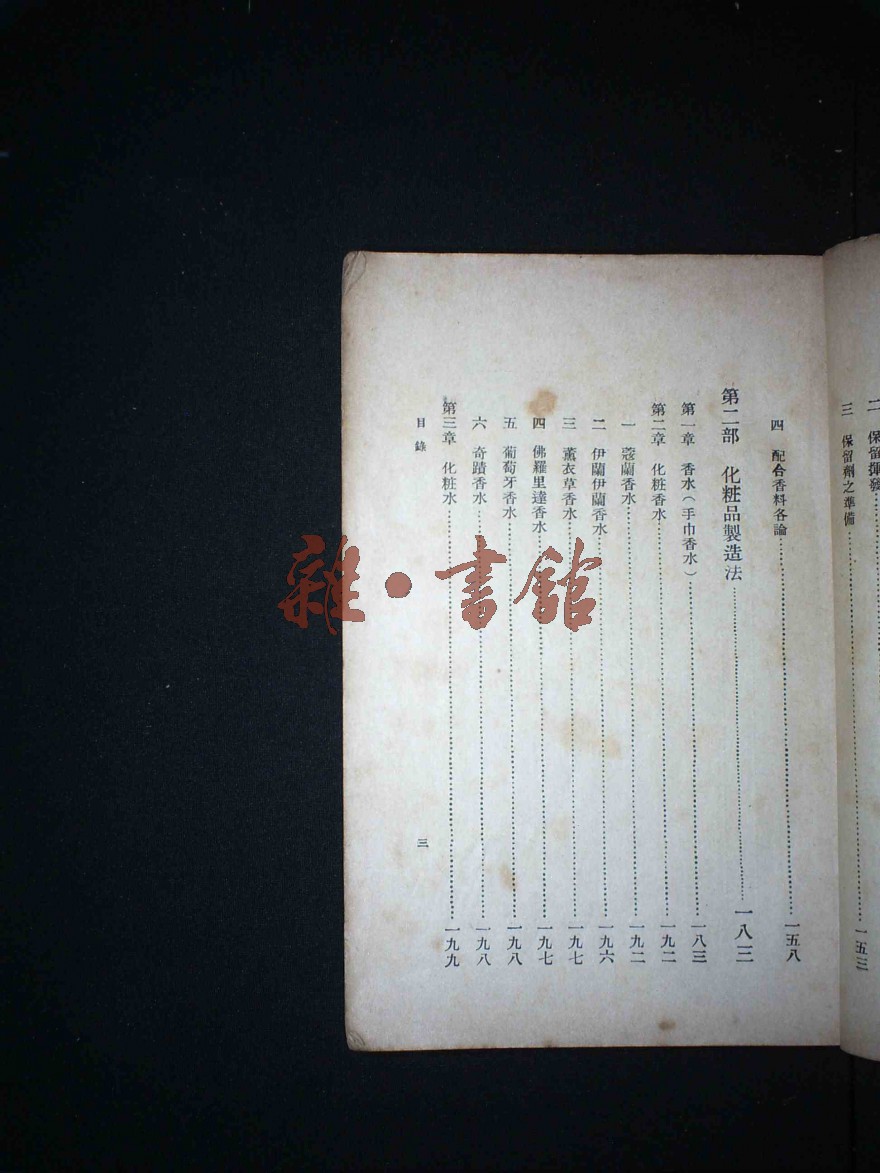 二 保留揮發
三 保留劑之準備……一五三
四 配合香料各論……一五八
第二部 化粧品製造法……一八三
第一章 香水（手巾香水）……一八三
第二章 化粧香水……一九二
一 蔻蘭香水……一九二
二 伊蘭伊蘭香水……一九六
三 薰衣草香水……一九七
四 佛羅里達香水……一九七
五 葡萄牙香水……一九八
六 奇蹟香水……一九八
第三章 化粧水……一九九
目錄
三
雜·書館